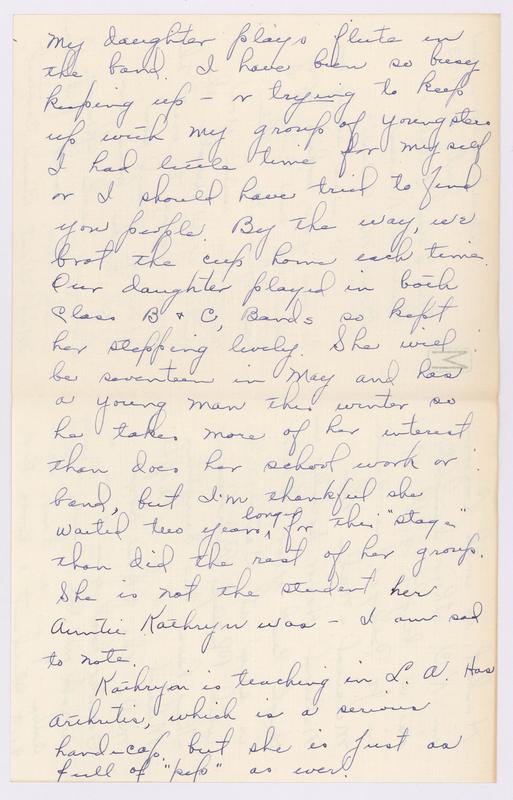 My daughter plays flute in
the band. I have been so busy
keeping up - or trying to keep
up with my group of youngsters
I had little time for myself
or I should have tried to find
you people. By the way, we
brot the cup home each time.
Our daughter played in both
Class B & C, Bands so kept
her stepping lively. She will
be seventeen in May and has
a young man this winter so
he takes more of her interest
than does her school work or
band, but I'm thankful she
waited two years longer for this "stage"
than did the rest of her group.
She is not the student her
Auntie Kathryn was - I am sad
to note.
Kathryn is teaching in L.A. Has
arthritis, which is a serious
handicap, but she is just as
full of "pep" as ever.